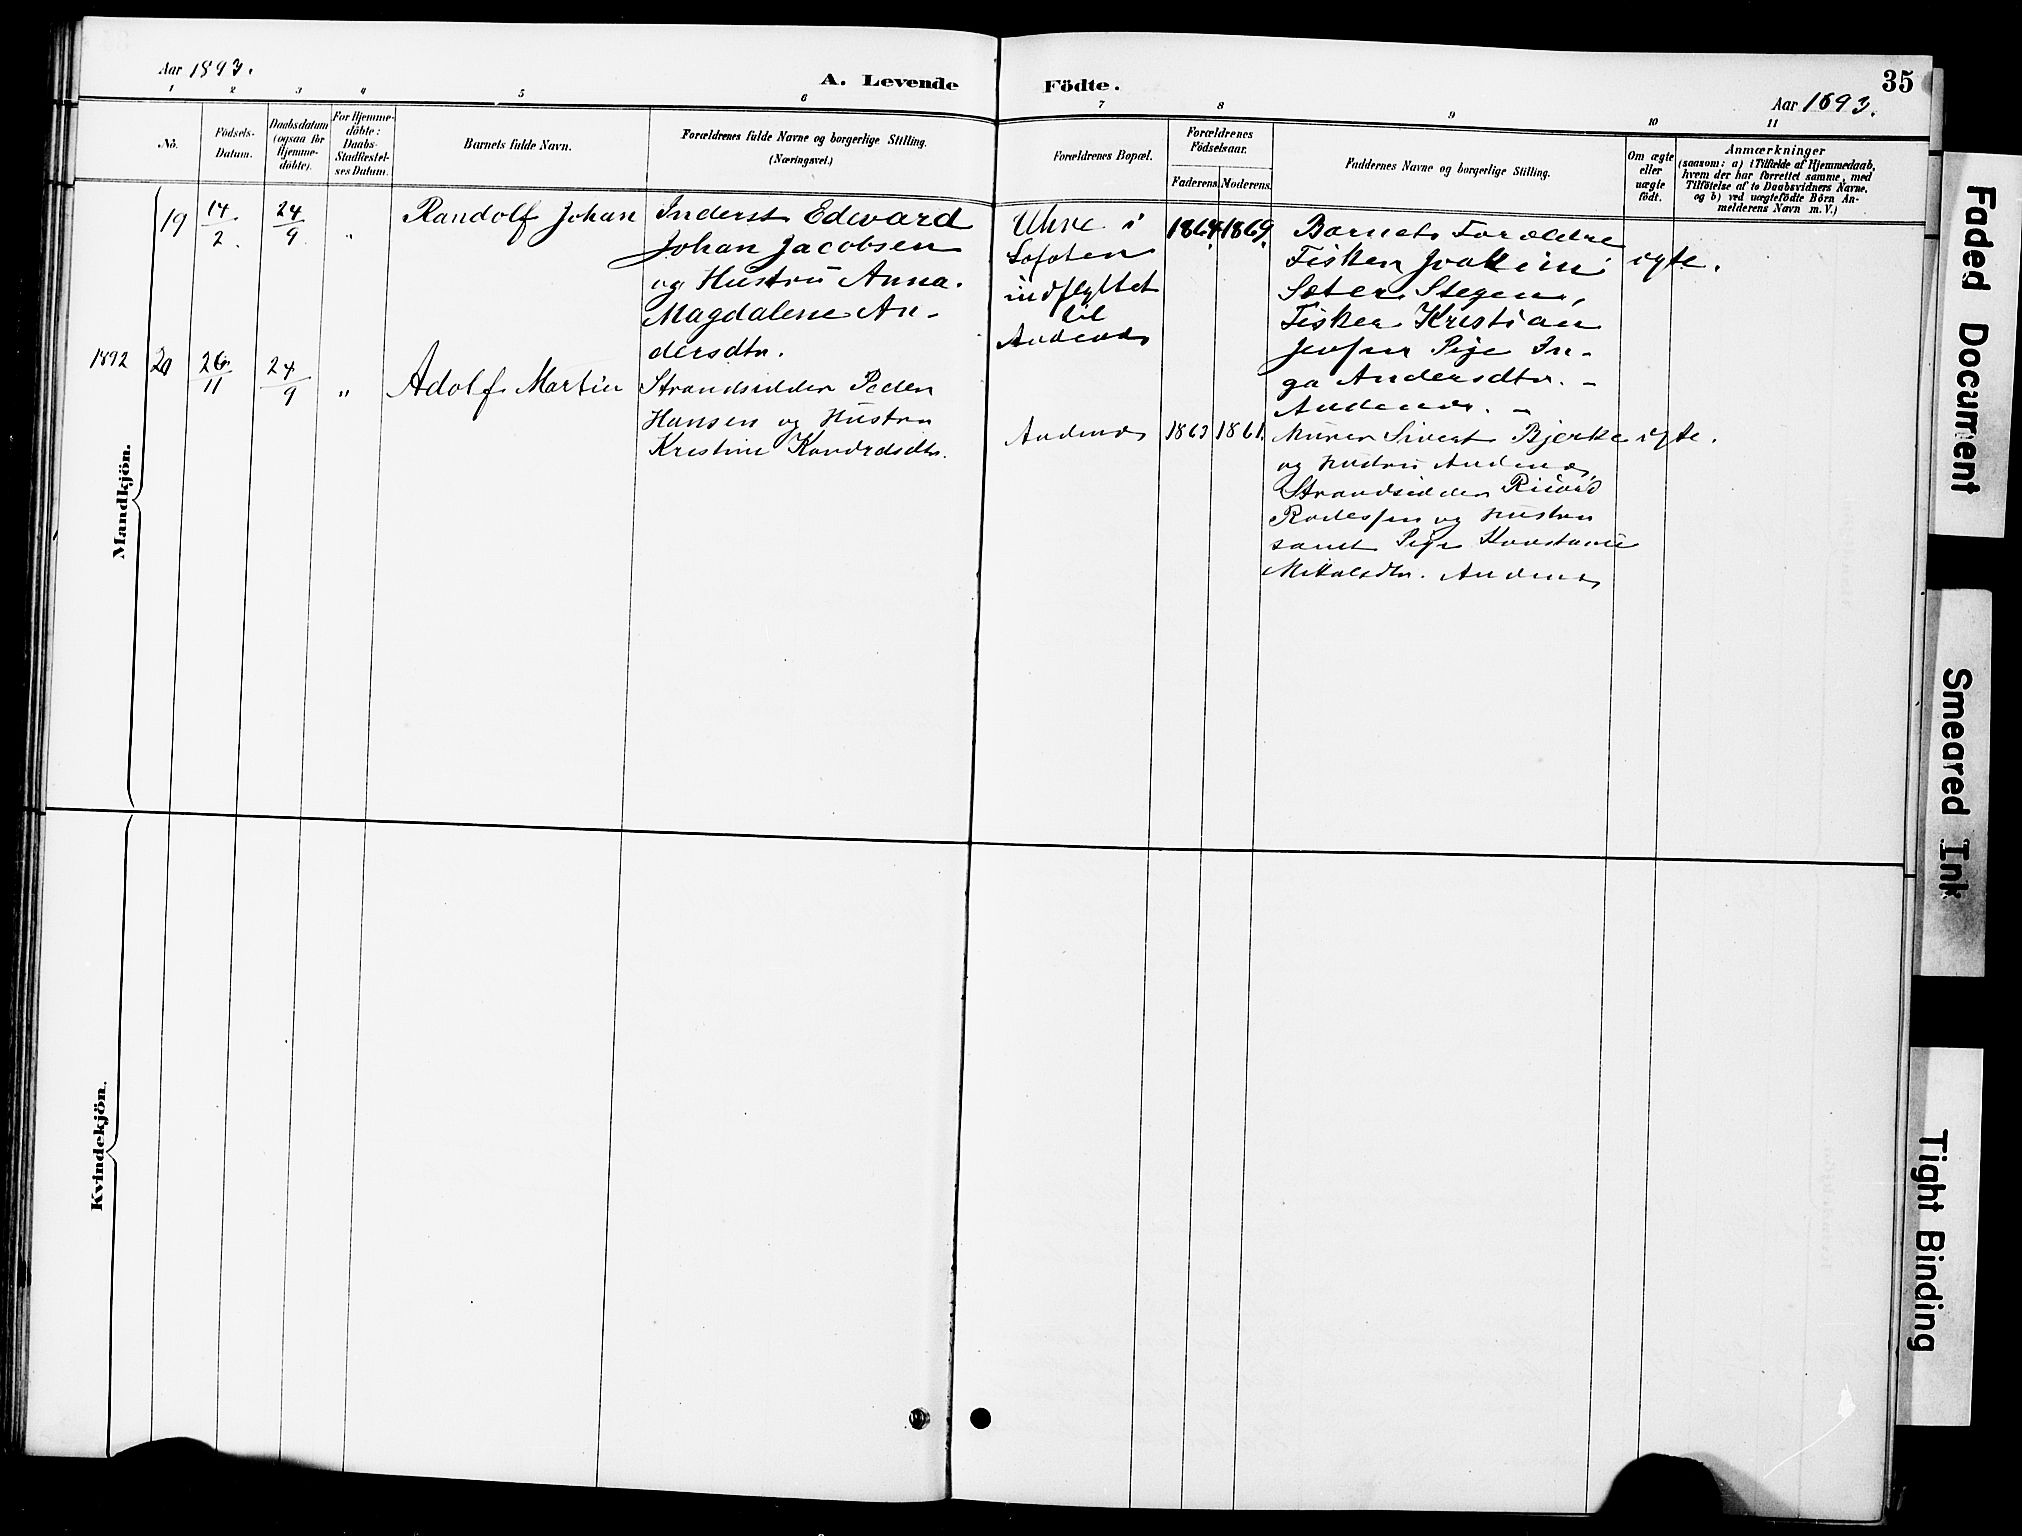 Aar 1893.
A. Levende
Födte.
35
Aar 1893.
1 2 3 4 5 6 7 8 9 10 11
No.
Födsels-
Datum.
Daabsdatum
(ogsaa for
Hjemme-
döbte).
For Hjemme-
döbte:
Daabs-
Stadfæstel-
ses Datum.
Barnets fulde Navn.
Forældrenes fulde Navne og borgerlige Stilling.
(Næringsvei.)
Forældrenes Bopæl.
Forældrenes
Födselsaar.
Faderens. Moderens.
Faddernes Navne og borgerlige Stilling.
Om ægte
eller
uægte
födt.
Anmærkninger
(saasom: a) i Tilfælde af Hjemmedaab,
hvem der har forrettet samme, med
Tilföielse af to Daabsvidners Navne.
og b) ved uægtefödte Börn An-
melderens Navn m. V.)
Mandkjön.
19
14/2.
24/9.
"
Randolf Johan
Inderst Edevard
Johan Jacobsen
og Hustru Anna
Magdalene An-
dersdtr.
i
Lofoten
indflyttet
til
Andenæs
1864. 1869.
Barnets Forældre
Fisker Joakim
Sæter Stegen,
Fisker Kristian
Pige In-
ga Andersdtr. -
Andenæs. -
ægte.
1892
20
26/11
24/9
"
Adolf Martin
Strandsidder Peder
Hansen og Hustru
Kristine
Andenæs
1863 1861.
Murer Sivert Bjerke
og Hustru Andenæs,
Strandsidder
og Hustru
samt Pige Konstanse
Andenæs
ægte.
Kvindekjön.
Faded Document
Smeared Ink
Tight Binding